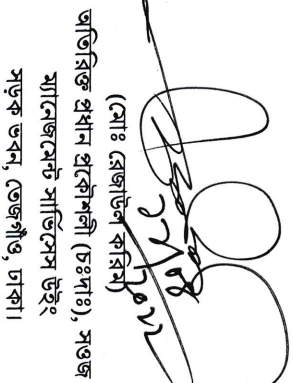 (মোঃ রেজাউল করিম)
অতিরিক্ত প্রধান প্রকৌশলী (চঃদাঃ), সওজ
ম্যানেজমেন্ট সার্ভিসেস উইং
সড়ক ভবন, তেজগাঁও, ঢাকা।